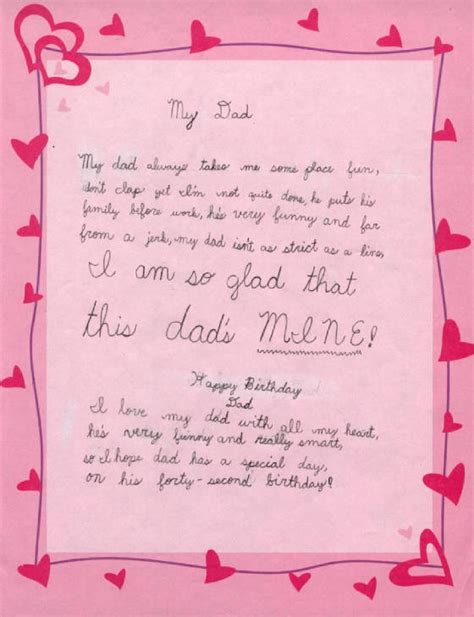 My Dad
My dad always takes me some place fun,
don't clap yet I'm not quite done, he puts his
family before work, he's very funny and far
from a jerk, my dad isn't as strict as a line,
I am so glad that
this dad's MINE!
Happy Birthday
Dad
I love my dad with all my heart,
he's very funny and really smart,
so I hope dad has a special day,
on his forty-second birthday!